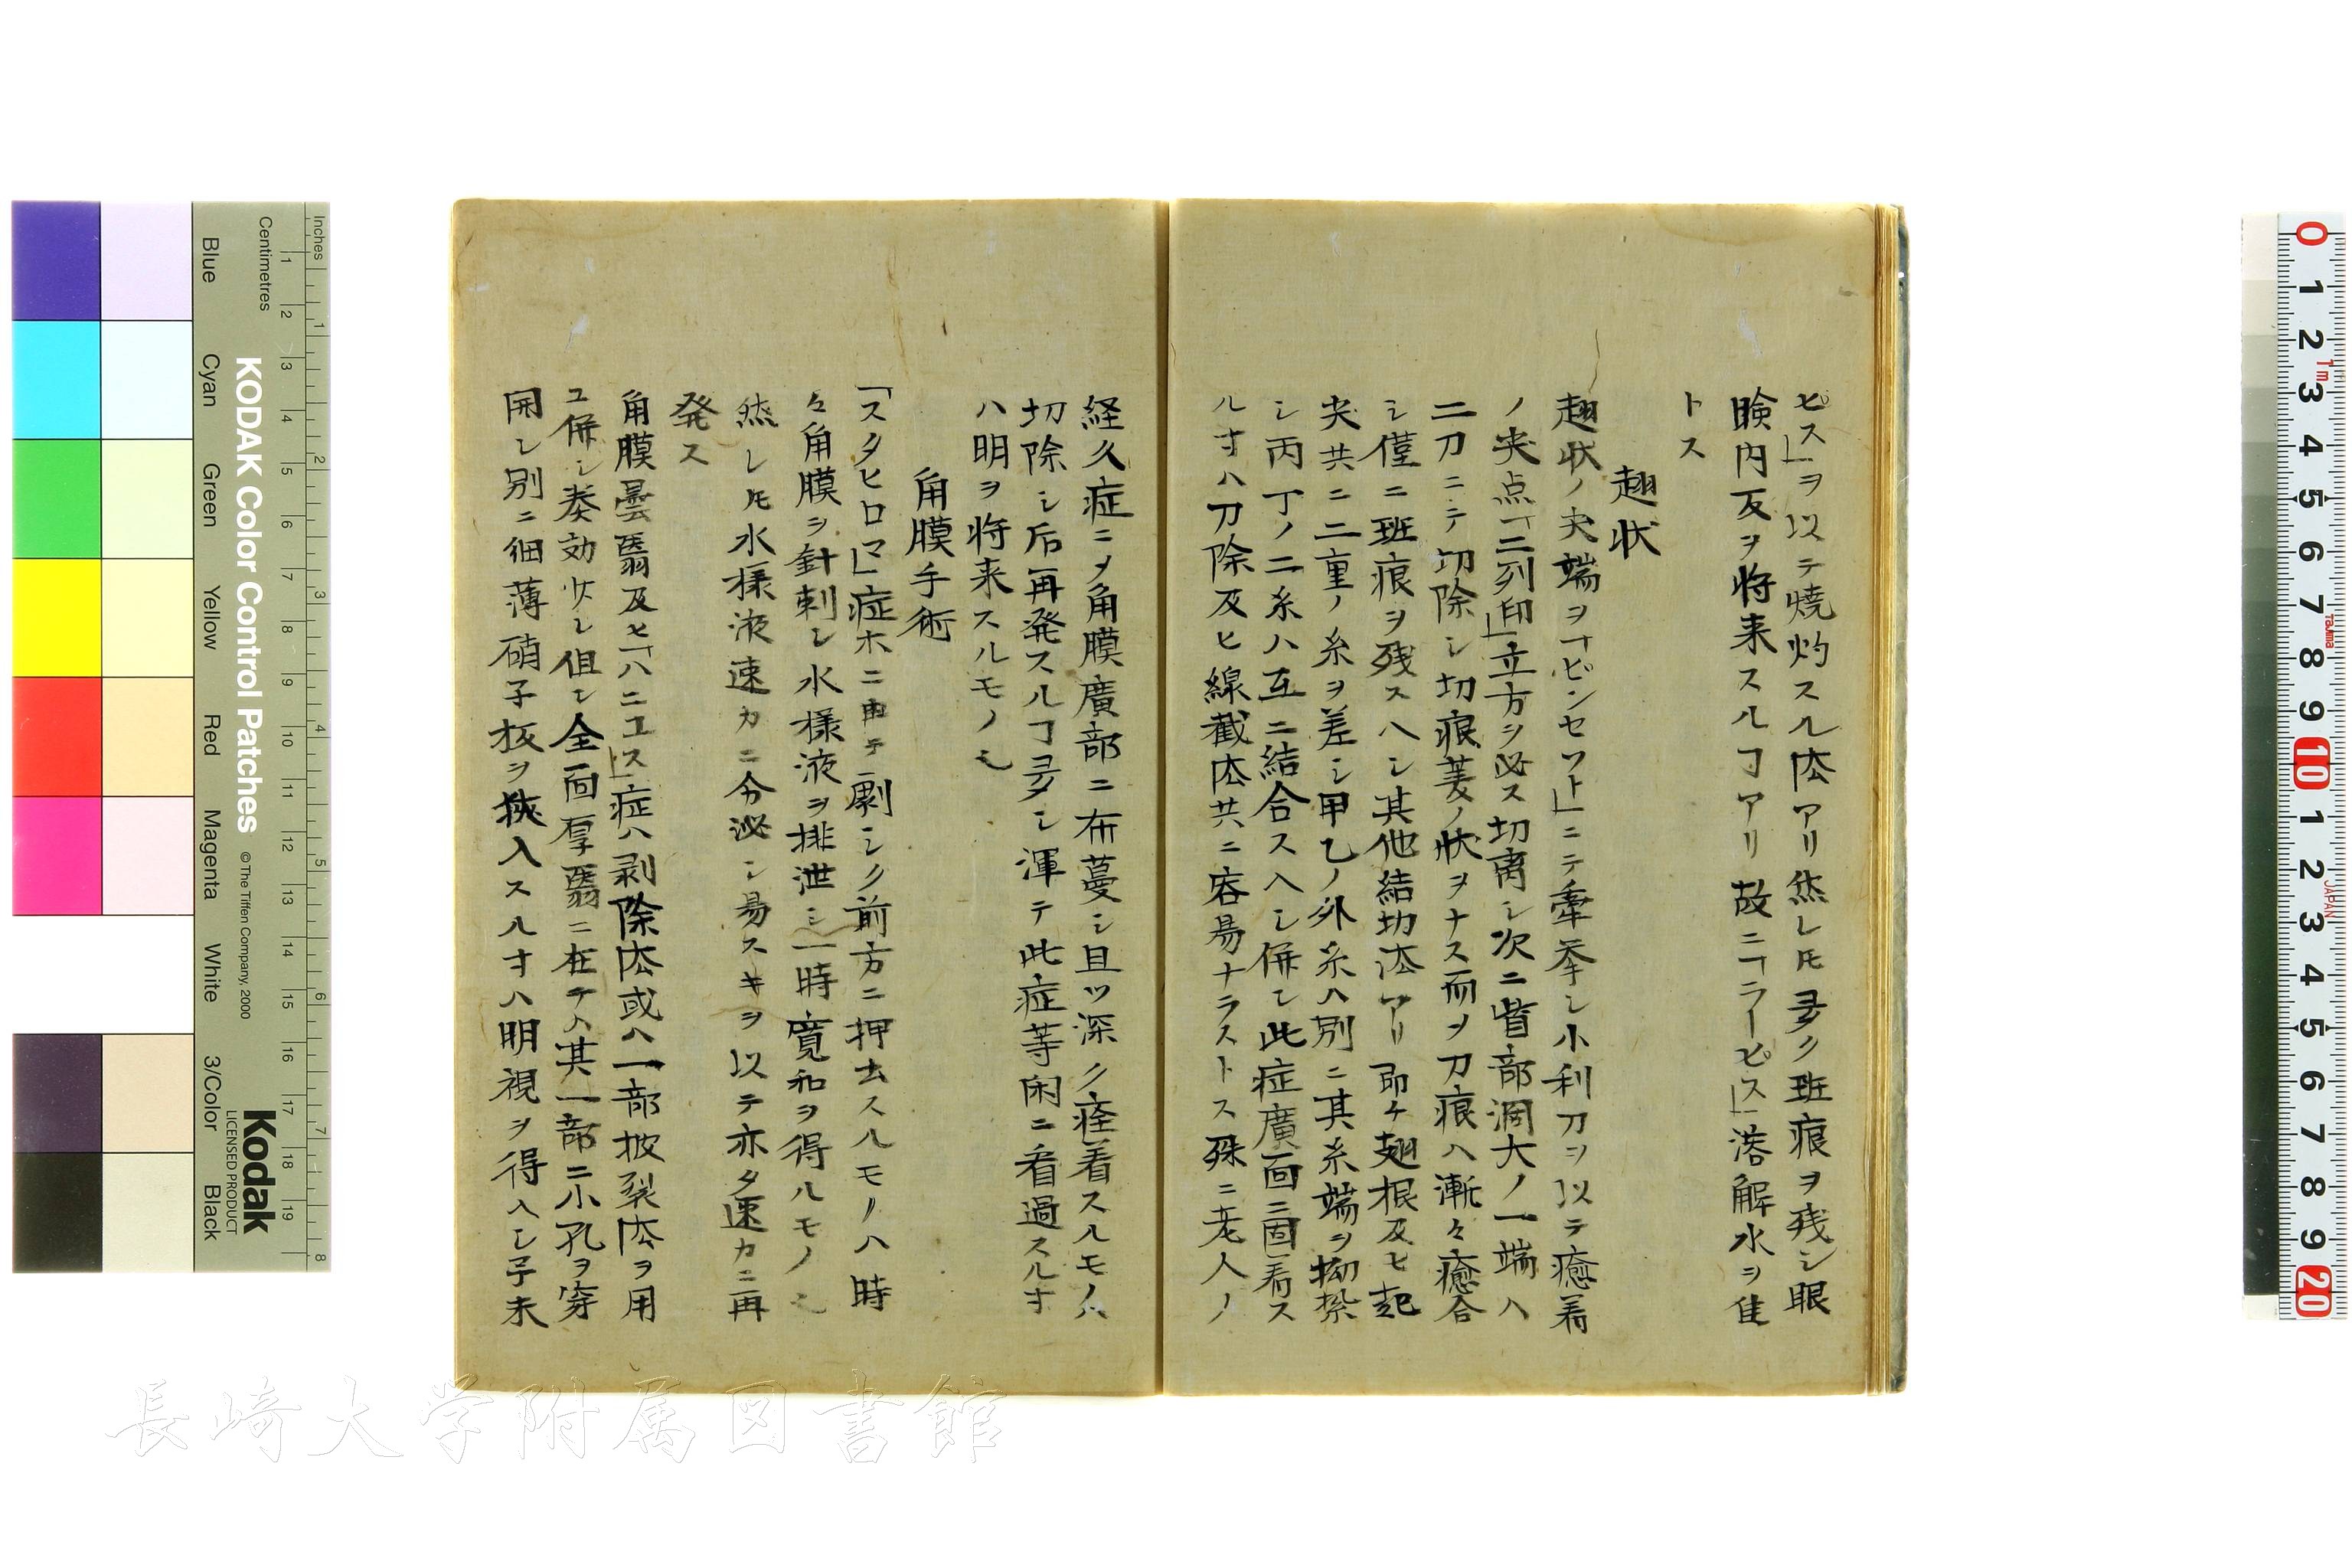 ピス」ヲ以テ燒灼スル法アリ然レ𪜈多ク班痕ヲ残シ眼
瞼内反ヲ将来スルヿアリ故ニ「ラーピス」溶解水ヲ佳
トス
翅状
翅状ノ尖端ヲ「ピンセット」ニテ牽挙シ小利刀ヲ以テ癒着
ノ尖点「二列印」立方ヲ必ス切离シ次ニ眥部濶大ノ一端ハ
二刀ニテ切除シ切痕菱ノ状ヲナス而ヲ刀痕ハ漸々癒合
シ僅ニ班痕ヲ残スヘシ其他結切法アリ即チ翅根及ヒ起
尖共ニ二重ノ糸ヲ差シ甲乙ノ外糸ハ別ニ其糸端ヲ拗紮
シ丙丁ノ二糸ハ互ニ結合スヘシ併シ此症廣面ニ固着ス
ル寸ハ刀除及ヒ線截法共ニ容易ナラストス殊ニ老人ノ
経久症ニメ角膜廣部ニ布蔓シ且ツ深ク痊着スルモノハ
切除シ后再発スルヿ多シ渾テ此症等閑ニ看過スル寸
ハ明ヲ将来スルモノ也
角膜手術
「スタヒロマ」症ホニ由テ劇シク前方ニ押去スルモノハ時
々角膜ヲ針刺シ水様液ヲ排泄シ一時寛和ヲ得ルモノ也
然レ𪜈水様液速カニ分泌シ易スキヲ以テ亦タ速カニ再
発ス
角膜曇翳及ヒ「ハニユス」症ハ剥除法或ハ一部披裂法ヲ用
ユ併シ奏効少レ但シ全面厚翳ニ在テハ其一部ニ小孔ヲ穿
開シ別ニ細薄硝子板ヲ狭入スル寸ハ明視ヲ得ヘシ予未
長崎大学附属図書館
KODAK Color Control Patches
© The Tiffen Company, 2000
Kodak
LICENSED PRODUCT
Inches
Centimetres
Blue
Cyan
Green
Yellow
Red
Magenta
White
3/Color
Black
1 2 3 4 5 6 7 8
1 2 3 4 5 6 7 8 9 10 11 12 13 14 15 16 17 18 19
0 1 2 3 4 5 6 7 8 9 10 1 2 3 4 5 6 7 8 9 20
1m
TAJIMA
JAPAN